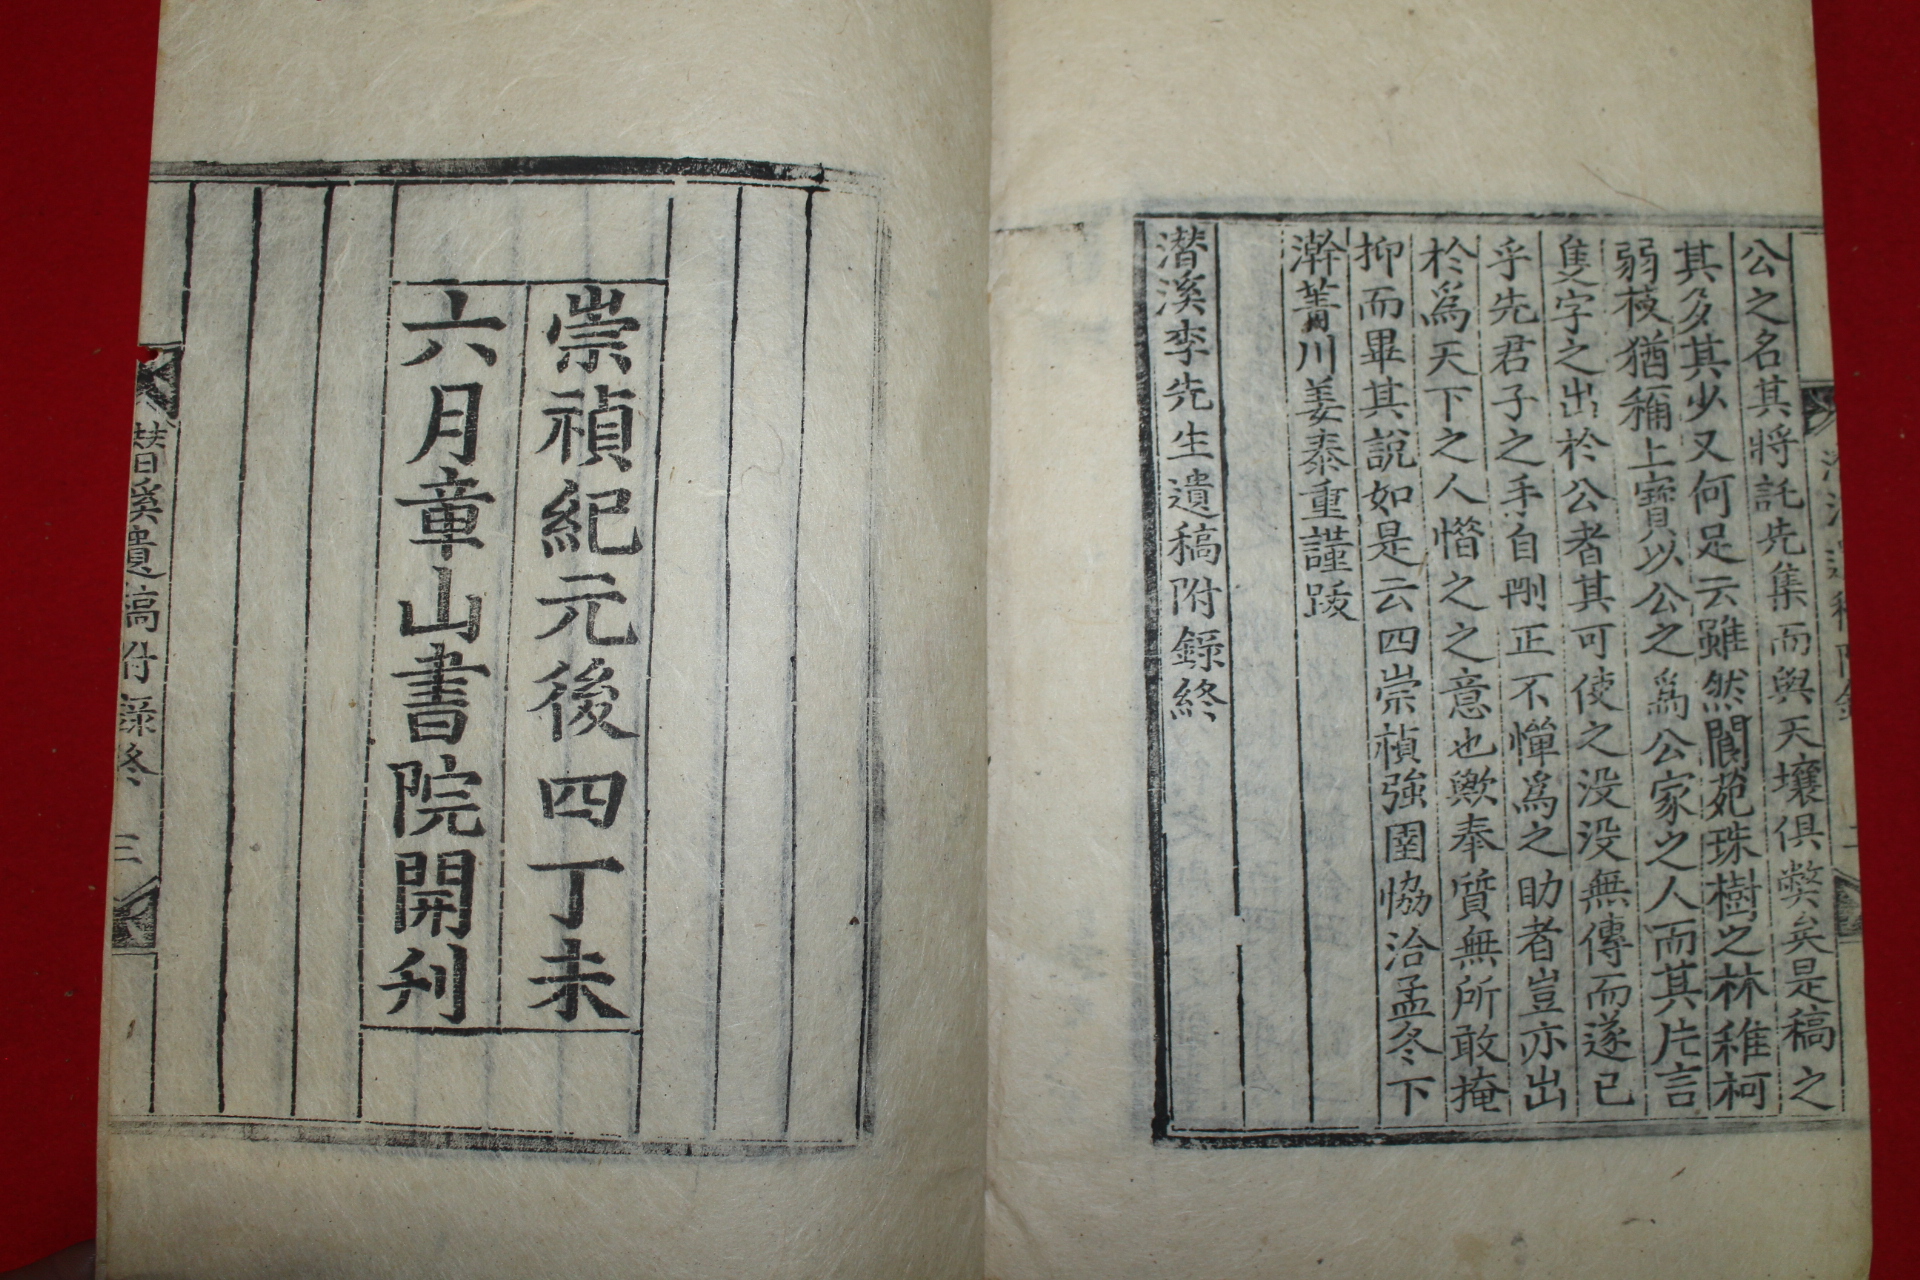 公之名其將託先集而與天壤俱弊矣是稿之
其多其少又何足云雖然閬苑珠樹之林稚柯
弱枝猶稱上寶以公之爲公家之人而其片言
隻字之出於公者其可使之没没無傳而遂已
乎先君子之手自刪正不憚爲之助者豈亦出
於爲天下之人惜之之意也歟奉質無所敢掩
抑而畢其說如是云四崇禎強圉恊洽孟冬下
澣菁川姜泰重謹跋
潛溪李先生遺稿附錄終
崇禎紀元後四丁未
六月章山書院開刋
潛溪遺稿附錄終 三